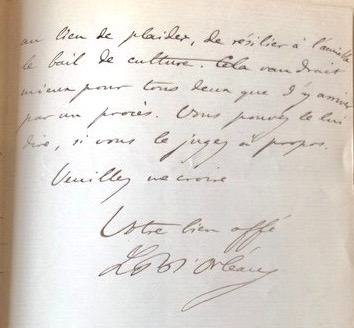 au lieu de plaider, de résilier à l'amiable
le bail de culture. Cela vaudrait
mieux pour tous deux que d'y arriver
par un procès. Vous pouvez le lui
dire, si vous le jugez à propos.
Veuillez me croire
Votre bien affé
d'Orléans